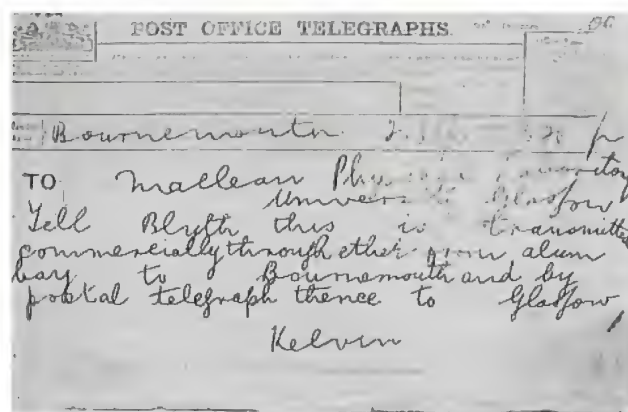 POST OFFICE TELEGRAPHS.
Bournemouth
TO Maclean Physical Laboratory
University Glasgow
Tell Blyth this is transmitted
commercially through ether from alum
bay to Bournemouth and by
postal telegraph thence to Glasgow
Kelvin